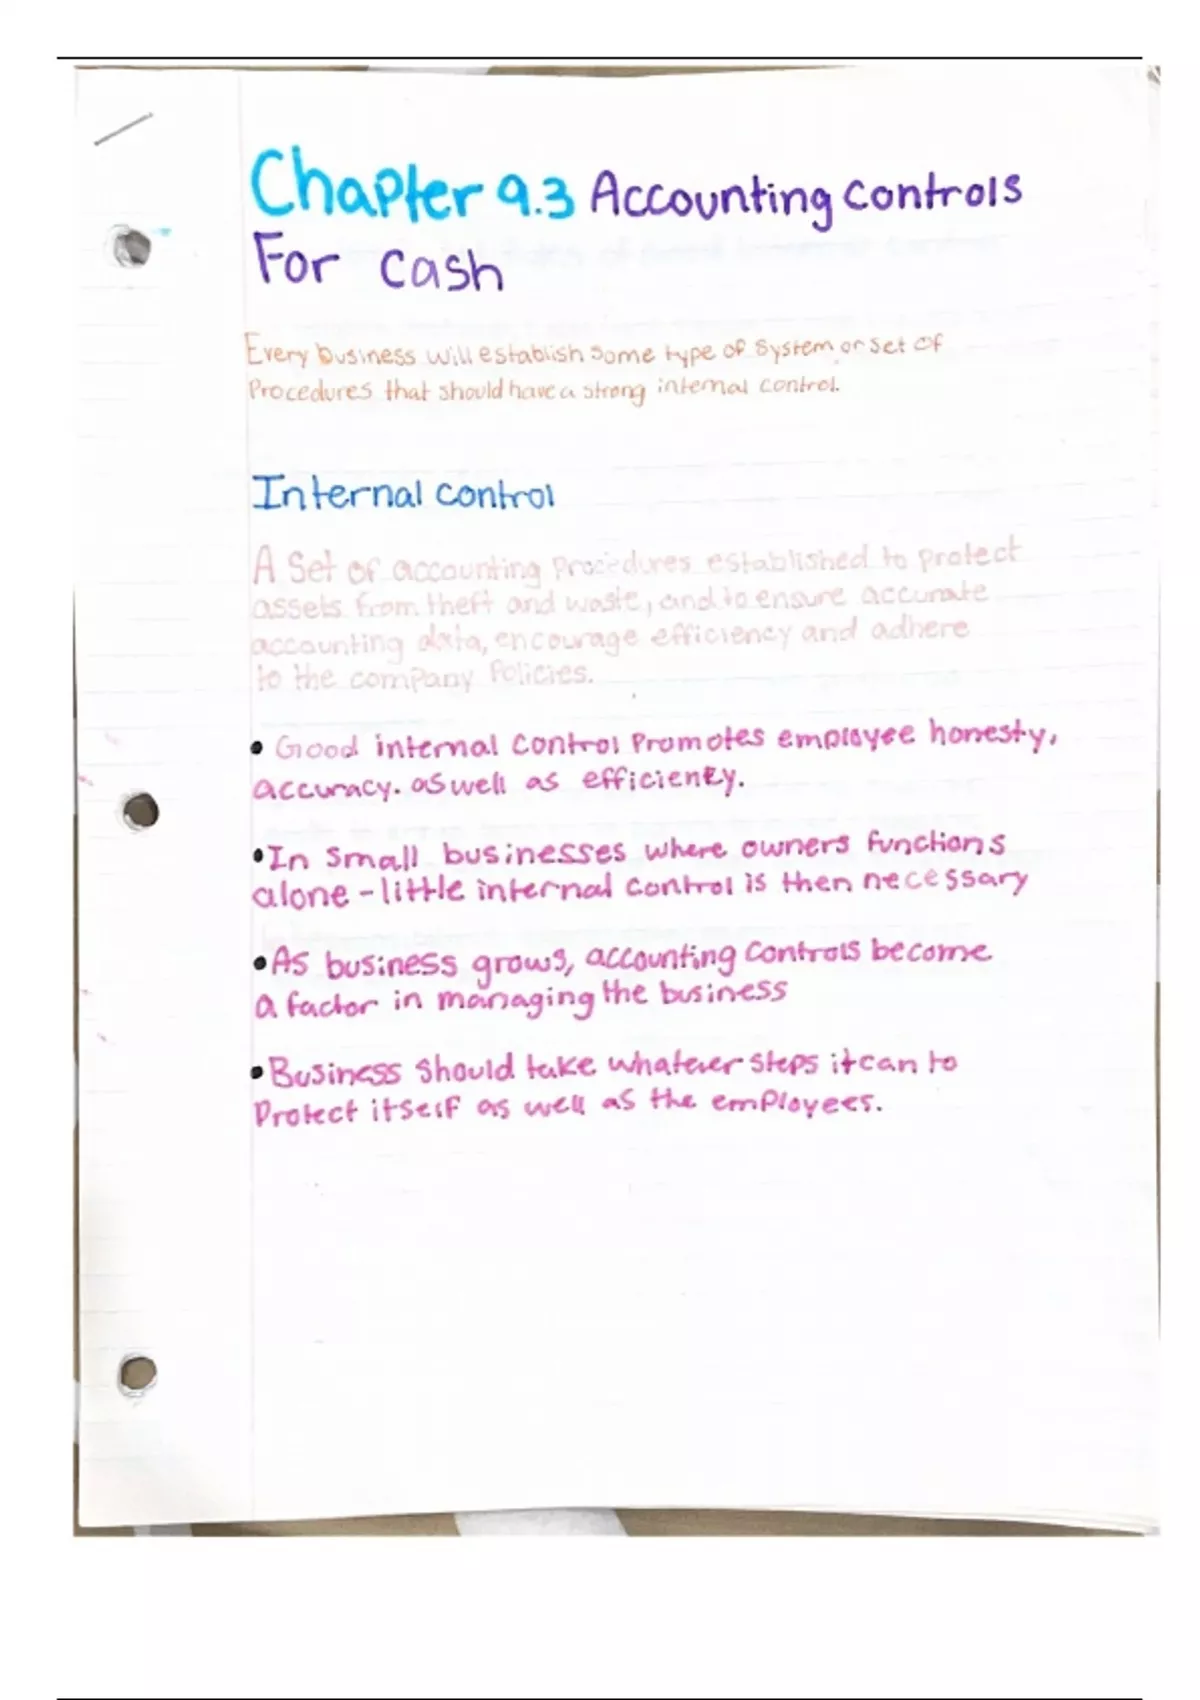 Chapter 9.3 Accounting controls
For cash
Every business will establish some type of system or set of
Procedures that should have a strong internal control.
Internal control
A Set of accounting procedures established to protect
assets from theft and waste, and to ensure accurate
accounting data, encourage efficiency and adhere
to the company Policies.
• Good internal control Promotes employee honesty,
accuracy. as well as efficiency.
• In small businesses where owners functions
alone - little internal control is then necessary
• As business grows, accounting controls become
a factor in managing the business
• Business should take whatever steps it can to
Protect itself as well as the employees.